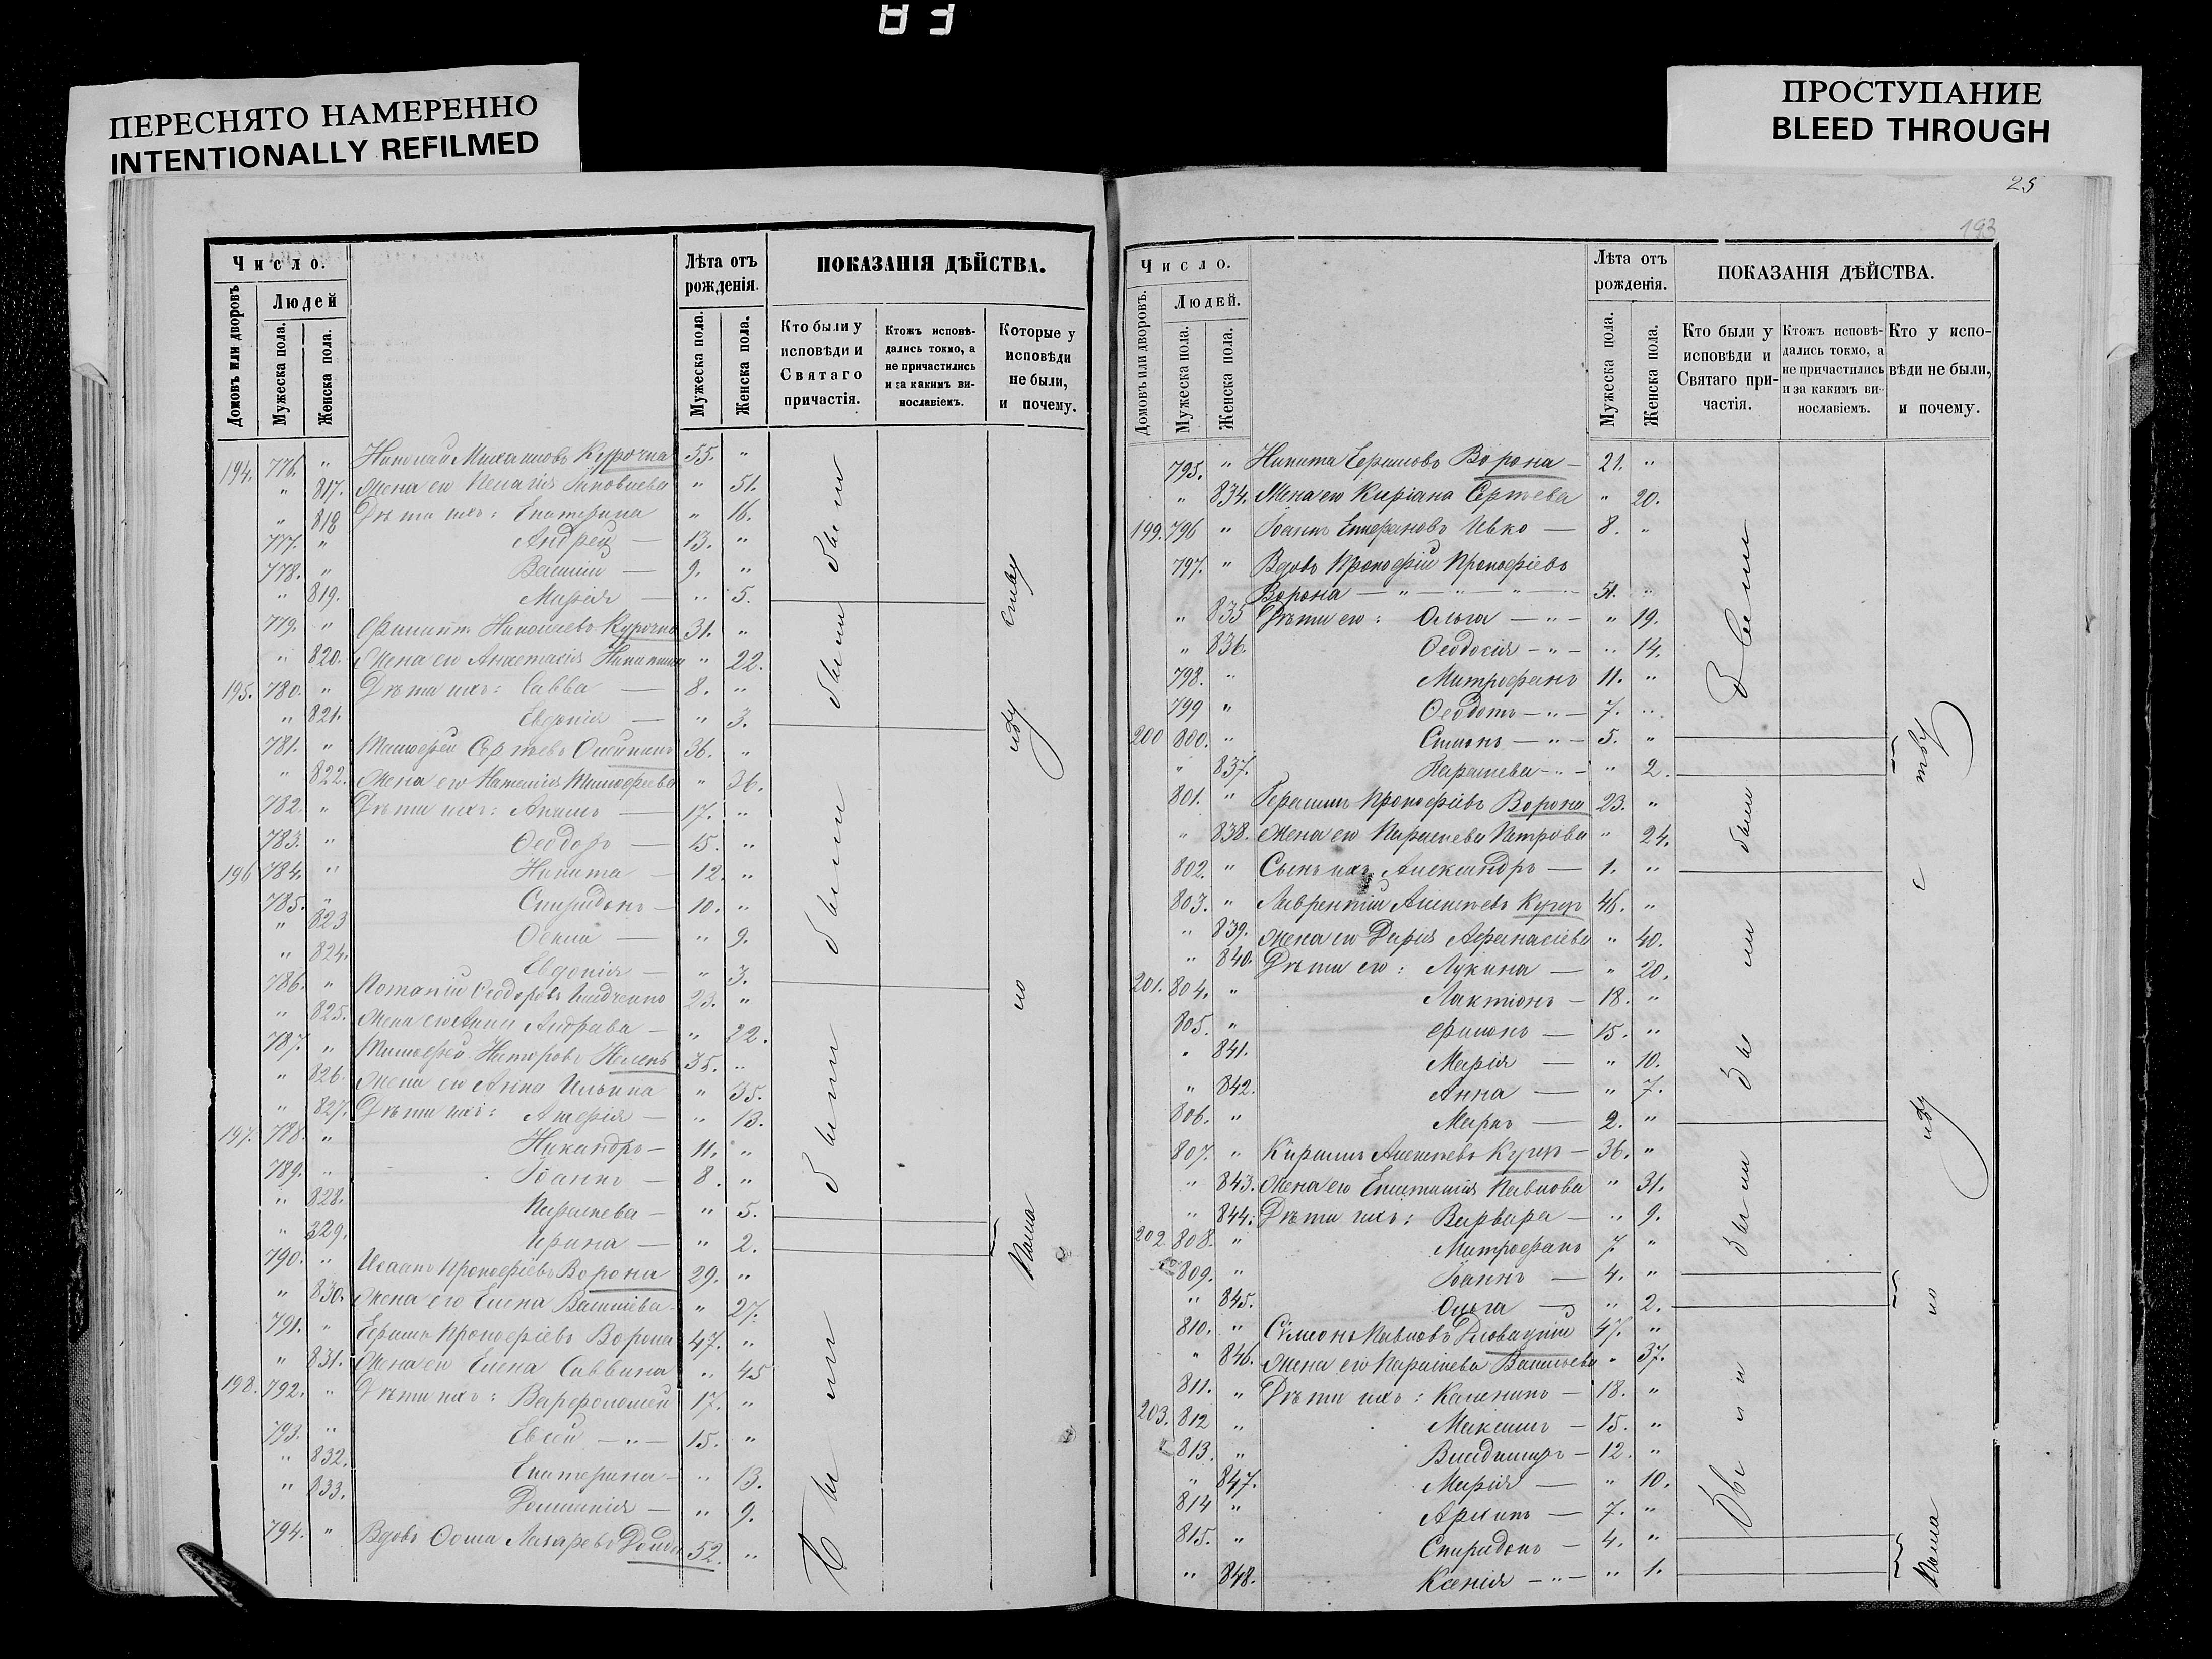 83
ПЕРЕСНЯТО НАМЕРЕННО
INTENTIONALLY REFILMED
ПРОСТУПАНИЕ
BLEED THROUGH
25
193
Число.
Людей
Домовъ или дворовъ
Мужеска пола.
Женска пола.
Лѣта отъ
рожденія.
Мужеска пола.
Женска пола.
ПОКАЗАНІЯ ДѢЙСТВА.
Кто были у
исповѣди и
Святаго
причастія.
Ктожъ исповѣ-
дались токмо, а
не причастились
и за какимъ ви-
нославіемъ.
Которые у
исповѣди
не были,
и почему.
194. 776. " Николай Михаиловъ Курочка 55. "
" 817. Жена его Пелагія Яковлева " 51.
" 818 Дѣти ихъ: Екатерина " 16.
777. " Андрей — 13. "
778. " Василій — 9. "
" 819. Марія — " 5.
779. " Филиппъ Николаевъ Курочка 31. "
" 820. Жена его Анастасія Никитина " 22.
195. 780. " Дѣти ихъ: Савва — 8. "
" 821. Евдокія — " 3.
781. " Тимофей Сергѣевъ 36. "
" 822. Жена его Наталія Тимофеева " 36.
782. " Дѣти ихъ: Акимъ — 17. "
783. " Ѳеодоръ — 15. "
196 784. " Никита — 12. "
785. " Спиридонъ — 10. "
" 823 Ѳекла — " 9.
" 824. Евдокія — " 3.
786. " Потапій Ѳеодоровъ 23. "
" 825. Жена его Андреева — " 22.
787. " Тимофей 35. "
" 826. Жена его Анна Ильина " 35.
" 827. Дѣти ихъ: — " 13.
197. 788. " Никандръ — 11. "
789. " Іоаннъ — 8. "
" 828. Параскева — " 5.
" 829. Ирина — " 2.
790. " Исаакъ Прокофіевъ Ворона 29. "
" 830. Жена его Елена Василіева " 27.
791. " Ефремъ Прокофіевъ Ворона 47. "
" 831. Жена его Елена Саввина " 45
198. 792. " Дѣти ихъ: Варфоломей 17. "
793. " Евсей — " — 15. "
" 832. Екатерина — " 13.
" 833. Домникія — " 9.
794. " Вдовъ Ѳома Лазаревъ 52. "
были
были
были
были
были
Кома
по
иду
ству
Число.
Людей.
Домовъ или дворовъ.
Мужеска пола.
Женска пола.
Лѣта отъ
рожденія.
Мужеска пола.
Женска пола.
ПОКАЗАНІЯ ДѢЙСТВА.
Кто были у
исповѣди и
Святаго при-
частія.
Ктожъ исповѣ-
дались токмо, а
не причастились
и за какимъ ви-
нославіемъ.
Кто у испо-
вѣди не были,
и почему.
795. " Никита Ефремовъ Ворона — 21. "
" 834. Жена его Киріана Сергѣева " 20.
199. 796 " Іоаннъ Епифановъ Ивко — 8. "
797. " Вдовъ Прокофій Прокофіевъ
Ворона — " — " — 51. "
" 835 Дѣти его: Ольга — " — " 19.
" 836. Ѳеодосія — " — " 14.
798. " Митрофанъ 11. "
799 " Ѳеодотъ — " — 7. "
200 800. " Симонъ — " — 5. "
" 837. Параскева — " — " 2.
801. " Герасимъ Прокофіевъ Ворона 23. "
" 838. Жена его Параскева Петрова " 24.
802. " Сынъ ихъ Александръ — 1. "
803. " Лаврентій Алексѣевъ 46. "
" 839. Жена его Дарія Афанасіева " 40.
" 840. Дѣти его: Лукина — " 20.
201. 804. " Лактіонъ — 18. "
805. " Филонъ — 15. "
" 841. Марія — " 10.
" 842. Анна — " 7.
806. " Маркъ — 2. "
807. " Кирилъ Алексѣевъ — 36. "
" 843. Жена его Евстафія Павлова " 31.
" 844. Дѣти ихъ: Варвара — " 9.
202 808. " Митрофанъ 7. "
809. " Іоаннъ — 4. "
" 845. Ольга — " 2.
810. " Сѵмеонъ Павловъ 47. "
" 846. Жена его Параскева Василіева " 37.
811. " Дѣти ихъ: Каленикъ — 18. "
203. 812 " Максимъ — 15. "
813. " Владимиръ — 12. "
" 847. Марія — " 10.
814 " Архипъ — 7. "
815. " Спиридонъ — 4. "
" 848. Ксенія — " — " 1.
были
были
были
были
были
Кома
по
иду
с
тву